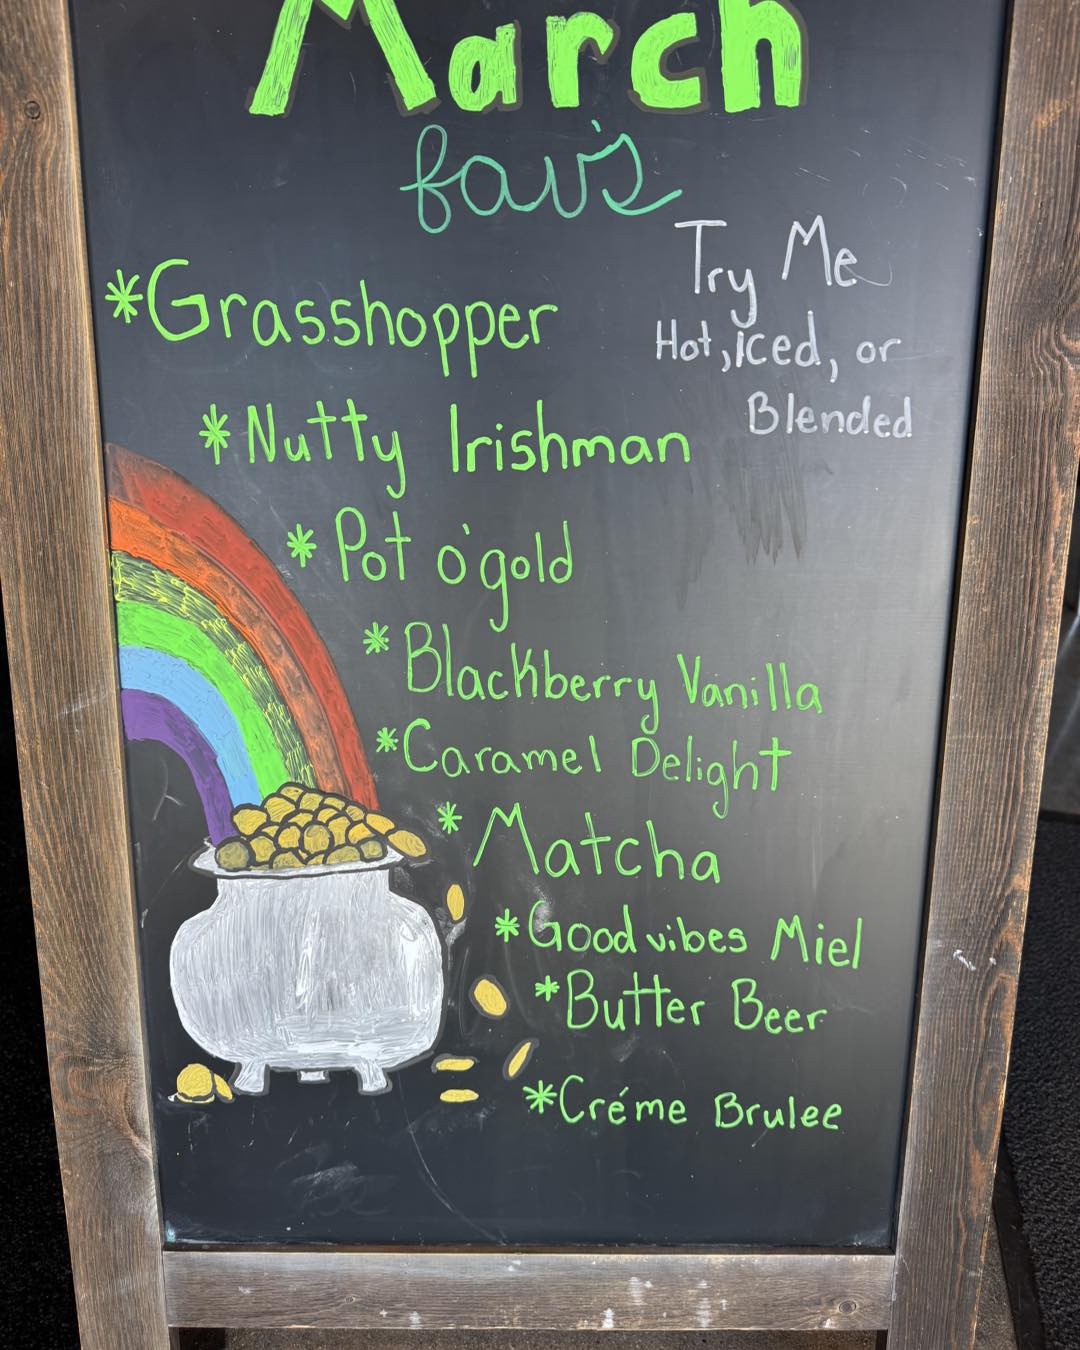 March
fav's
Try Me
Hot, iced, or
Blended
*Grasshopper
*Nutty Irishman
*Pot o'gold
*Blackberry Vanilla
*Caramel Delight
*Matcha
*Good vibes Miel
*Butter Beer
*Créme Brulee